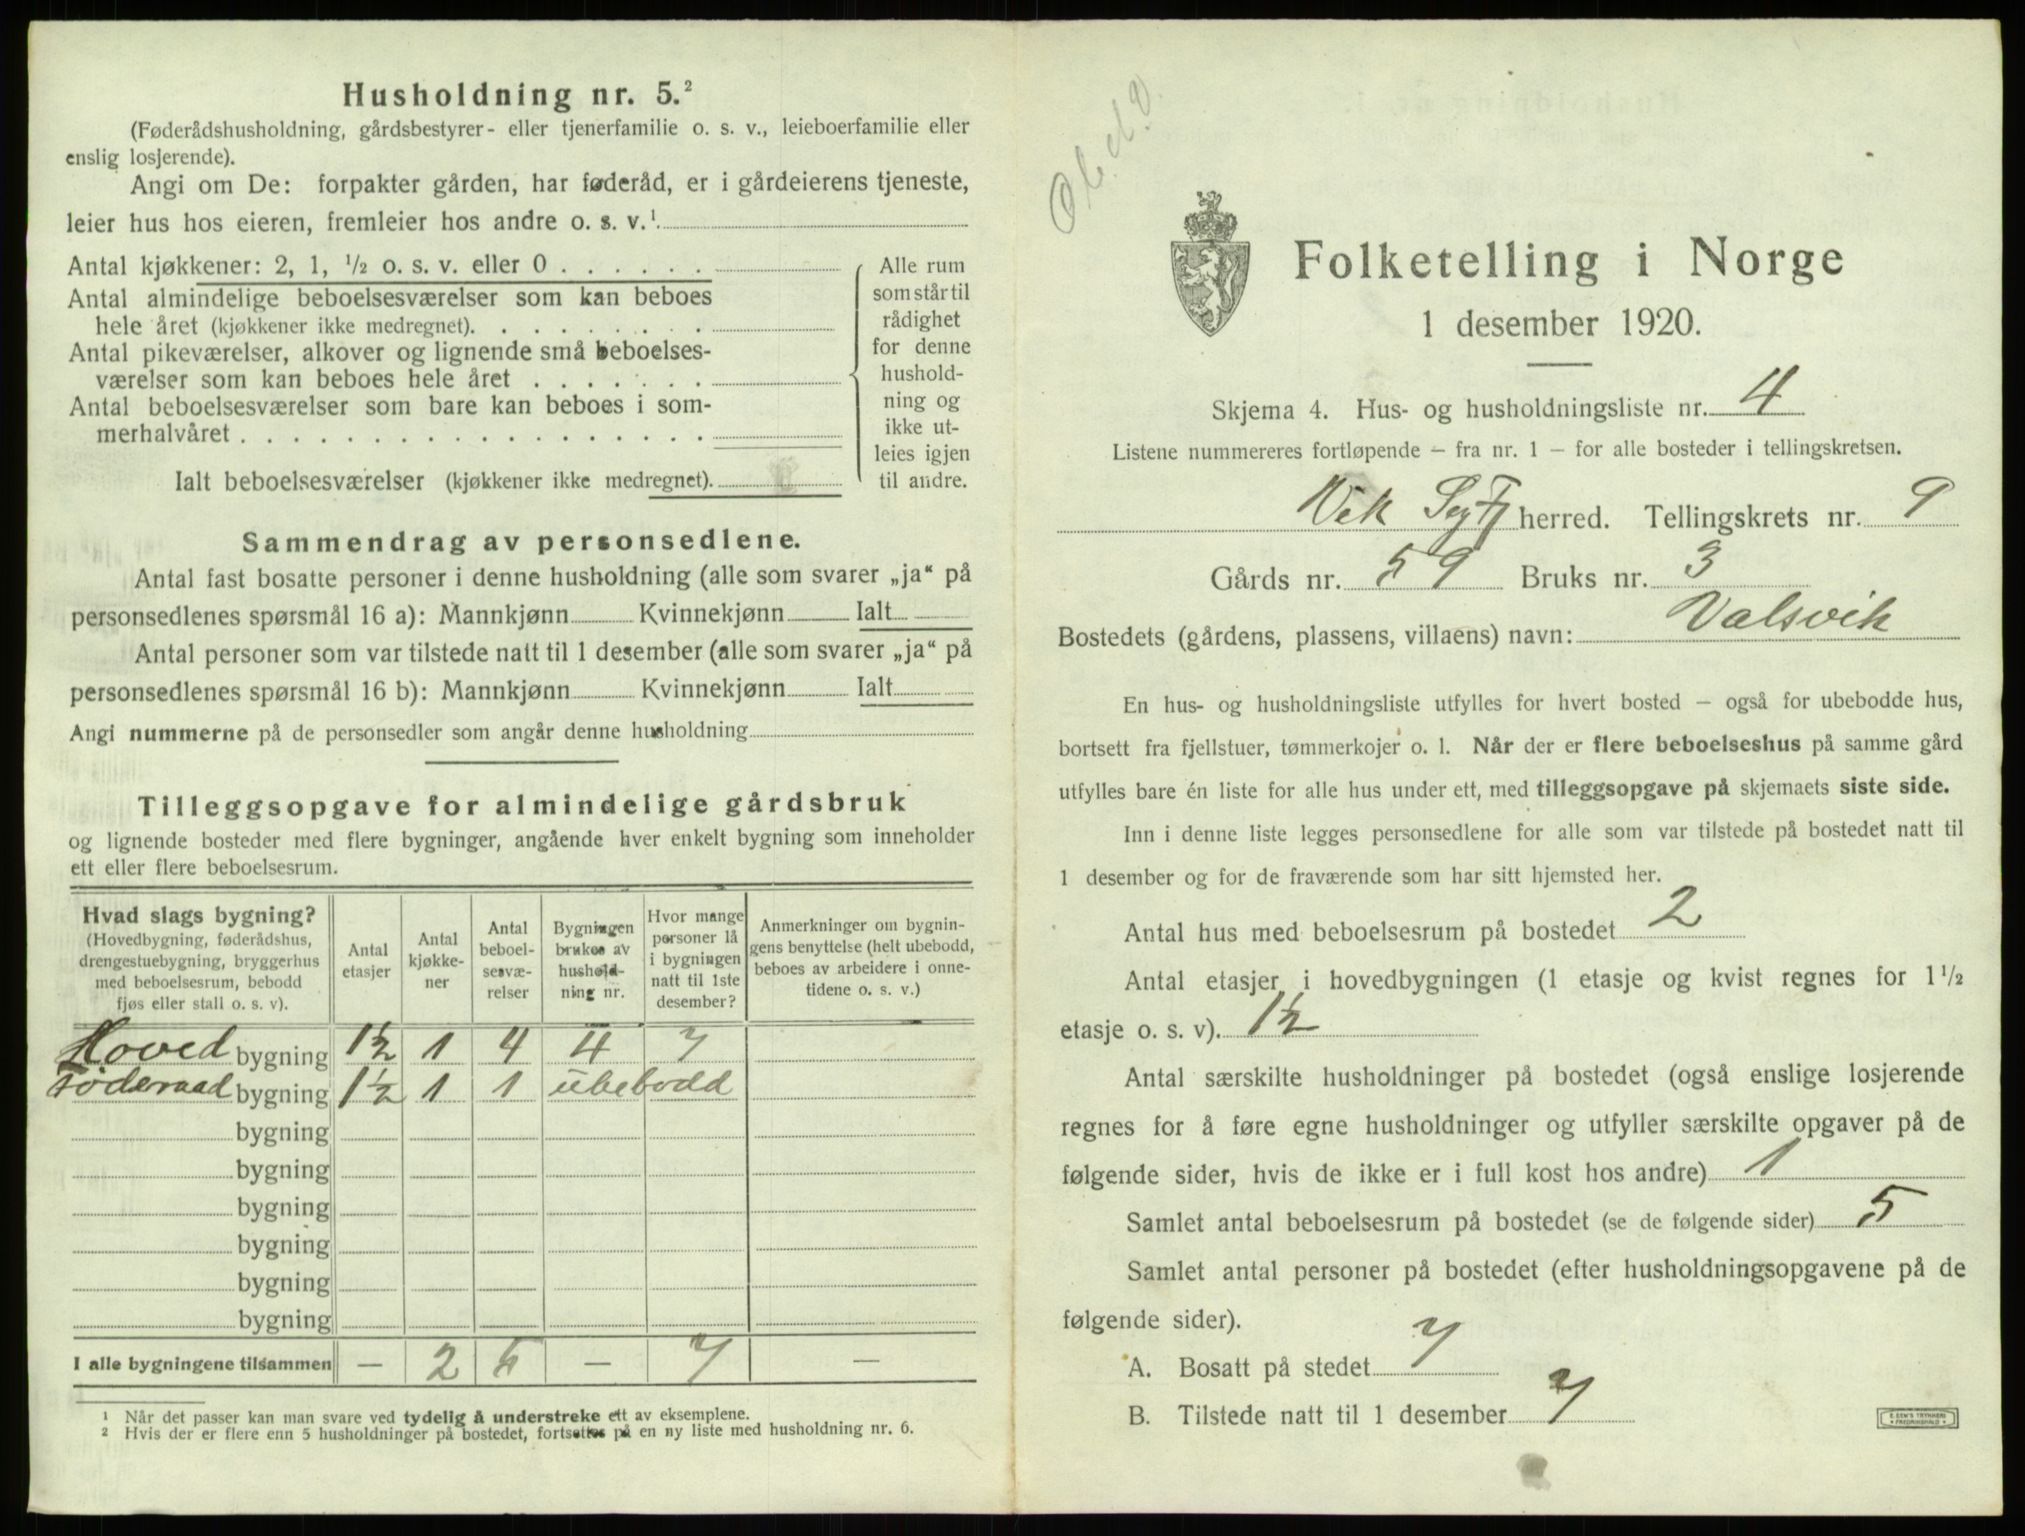 Husholdning nr. 5.²
(Føderådshusholdning, gårdsbestyrer- eller tjenerfamilie o. s. v., leieboerfamilie eller
enslig losjerende).
Angi om De: forpakter gården, har føderåd, er i gårdeierens tjeneste,
leier hus hos eieren, fremleier hos andre o. s. v.¹
Antal kjøkkener: 2, 1, ½ o. s. v. eller 0 . . . . . .
Antal almindelige beboelsesværelser som kan beboes
hele året (kjøkkener ikke medregnet). . . . . . . . .
Antal pikeværelser, alkover og lignende små beboelses-
værelser som kan beboes hele året . . . . . . .
Antal beboelsesværelser som bare kan beboes i som-
merhalvåret . . . . . . . . . . . . . . . . . .
Ialt beboelsesværelser (kjøkkener ikke medregnet).
Alle rum
som står til
rådighet
for denne
hushold-
ning og
ikke ut-
leies igjen
til andre.
Sammendrag av personsedlene.
Antal fast bosatte personer i denne husholdning (alle som svarer „ja“ på
personsedlenes spørsmål 16 a): Mannkjønn Kvinnekjønn Ialt
Antal personer som var tilstede natt til 1 desember (alle som svarer „ja“ på
personsedlenes spørsmål 16 b): Mannkjønn Kvinnekjønn Ialt
Angi nummerne på de personsedler som angår denne husholdning
Tilleggsopgave for almindelige gårdsbruk
og lignende bosteder med flere bygninger, angående hver enkelt bygning som inneholder
ett eller flere beboelsesrum.
Hvad slags bygning?
(Hovedbygning, føderådshus,
drengestuebygning, bryggerhus
med beboelsesrum, bebodd
fjøs eller stall o. s. v).
Antal
etasjer
Antal
kjøkke-
ner
Antal
beboel-
sesvæ-
relser
Bygningen
brukes av
hushold-
ning nr.
Hvor mange
personer lå
i bygningen
natt til 1ste
desember?
Anmerkninger om bygnin-
gens benyttelse (helt ubebodd,
beboes av arbeidere i onne-
tidene o. s. v.)
Hoved bygning 1½ 1 4 4 7
føderaad bygning 1½ 1 1 ubebodd
bygning
bygning
bygning
bygning
bygning
bygning
I alle bygningene tilsammen — 2 5 — 7 —
¹ Når det passer kan man svare ved tydelig å understreke ett av eksemplene.
² Hvis der er flere enn 5 husholdninger på bostedet, fortsettes på en ny liste med husholdning nr. 6.
Folketelling i Norge
1 desember 1920.
Skjema 4. Hus- og husholdningsliste nr. 4
Listene nummereres fortløpende — fra nr. 1 — for alle bosteder i tellingskretsen.
Vik herred. Tellingskrets nr. 9
Gårds nr. 59 Bruks nr. 3
Bostedets (gårdens, plassens, villaens) navn: Valsvik
En hus- og husholdningsliste utfylles for hvert bosted — også for ubebodde hus,
bortsett fra fjellstuer, tømmerkojer o. l. Når der er flere beboelseshus på samme gård
utfylles bare én liste for alle hus under ett, med tilleggsopgave på skjemaets siste side.
Inn i denne liste legges personsedlene for alle som var tilstede på bostedet natt til
1 desember og for de fraværende som har sitt hjemsted her.
Antal hus med beboelsesrum på bostedet 2
Antal etasjer i hovedbygningen (1 etasje og kvist regnes for 1½
etasje o. s. v). 1½
Antal særskilte husholdninger på bostedet (også enslige losjerende
regnes for å føre egne husholdninger og utfyller særskilte opgaver på de
følgende sider, hvis de ikke er i full kost hos andre) 1
Samlet antal beboelsesrum på bostedet (se de følgende sider) 5
Samlet antal personer på bostedet (efter husholdningsopgavene på de
følgende sider).
A. Bosatt på stedet 7
B. Tilstede natt til 1 desember 7